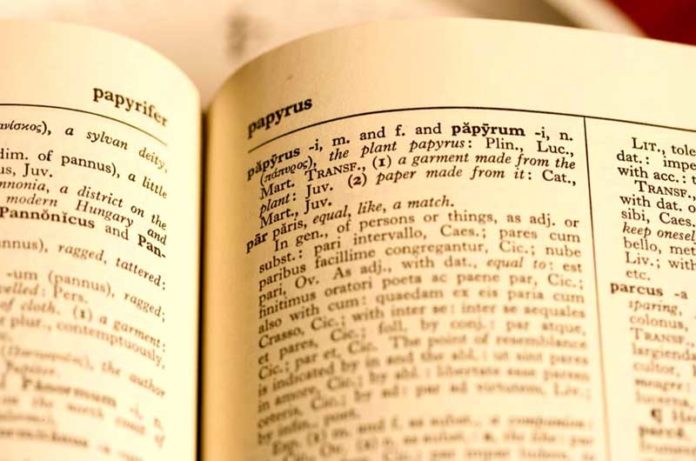 papyrifer
-ανίσκος), a sylvan deity,
dim. of pannus), a little
us, Juv.
nnonia, a district on the
modern Hungary and
Pannŏnĭcus and Pan-
pannus), ragged, tattered:
-um (pannus), ragged;
velled: Pers.
of cloth. (1) a garment:
plur., contemptuously,
the author
papyrus
păpȳrus -i, m. and f. and păpȳrum -i, n.
(πάπυρος), the plant papyrus: Plin., Luc.,
Mart. TRANSF., (1) a garment made from the
plant: Juv. (2) paper made from it: Cat.,
Mart., Juv.
pār păris, equal, like, a match.
In gen., of persons or things, as adj. or
subst.: pari intervallo, Caes.; pares cum
paribus facillime congregantur, Cic.; nube
pari, Ov. As adj., with dat., equal to: est
finitimus oratori poeta ac paene par, Cic.;
also with cum: quaedam ex eis paria cum
Crasso, Cic.; with inter se: inter se aequales
et pares, Cic.; foll. by conj.: par atque,
Cic.; par et, Cic. The point of resemblance
is indicated by in and the abl.: ut sint pares
in amore, Cic.; by abl.: libertate esse parem
ceteris, Cic.; by ad: par ad virtutem, Liv.;
by infin., poet.
LIT., tole
dat.: impe
with acc.: t
TRANSF.,
with dat. o
sibi, Caes.
keep onesel
bello, met
Liv.; with
etc.
parcus -a
sparing,
colonus,
TRANSF.
largiend
cultor,
meagre:
lucerna